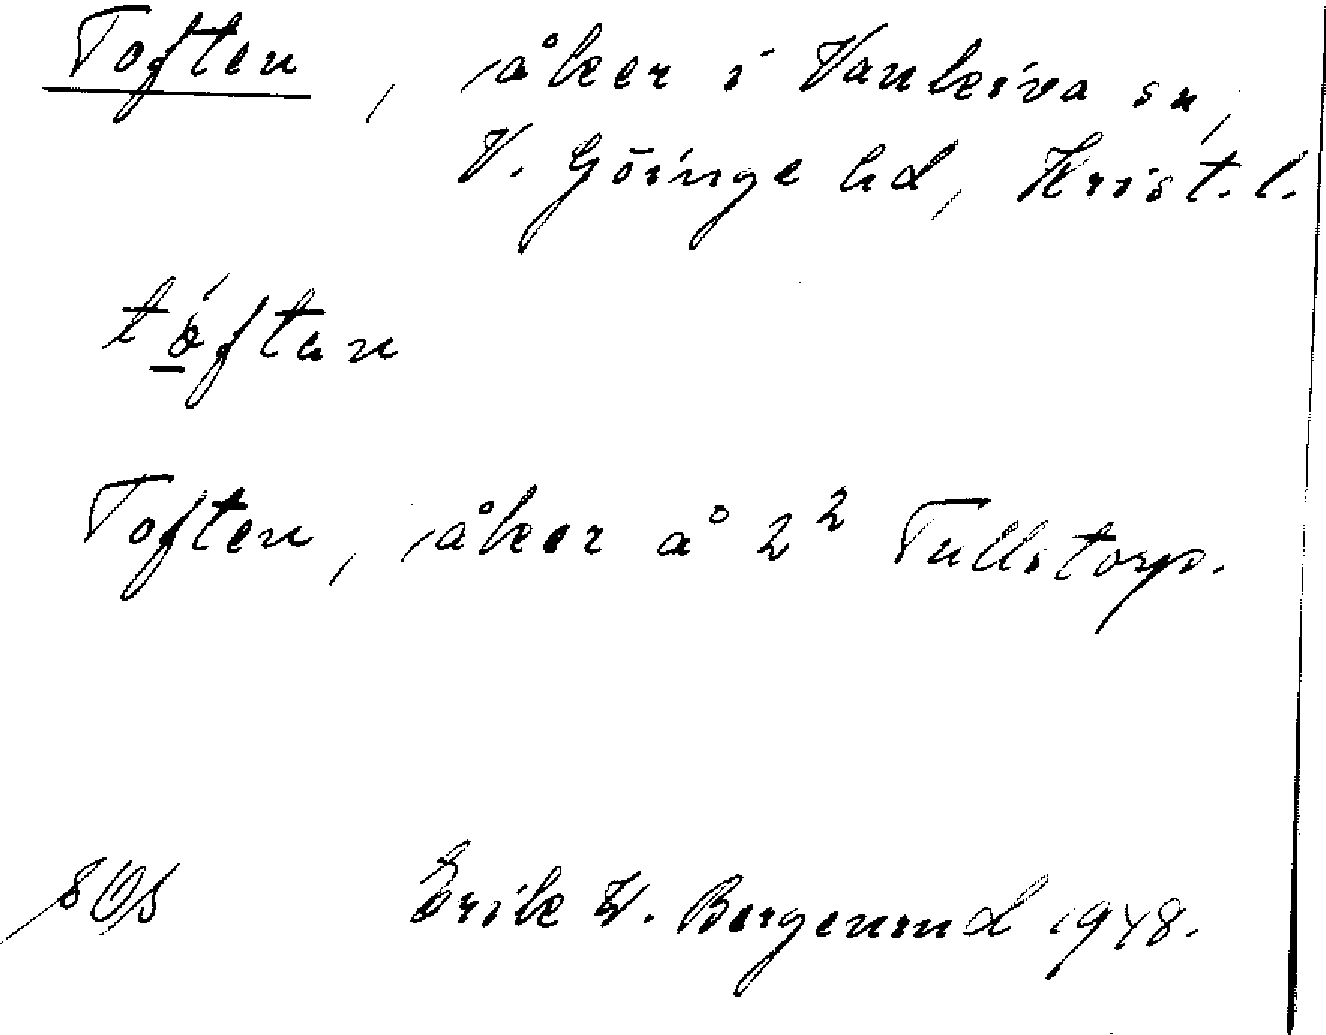 Toften, åker i Vankiva sn,
V. Göinge hd, Krist. l.
tóftan
Toften, åker å 2² Tullstorp.
Erik W. Bergenund 1948.